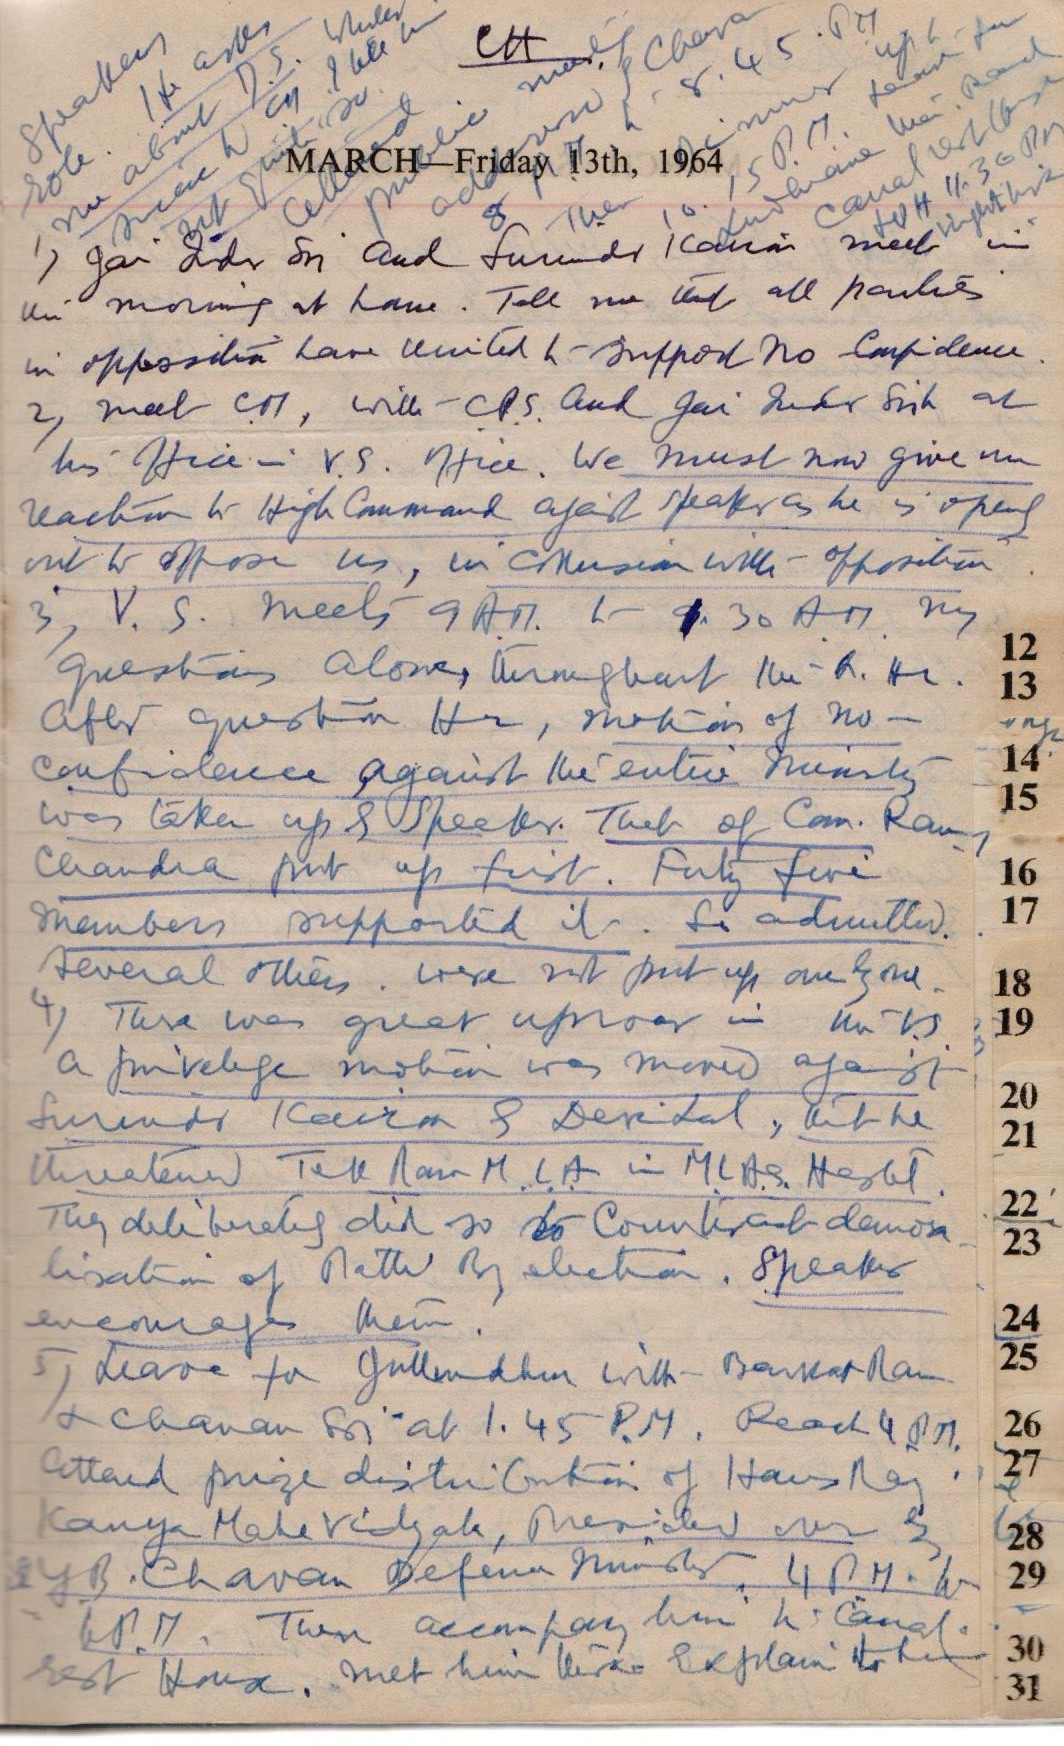 CH
MARCH—Friday 13th, 1964
1) Jai Inder Sri and Surinder Kairon meet in
the morning at home. Tell me that all parties
in opposition have united to support No Confidence.
2, meet CM, with C.P.S. and Jai Inder Singh at
his office in V.S. office. We must now give our
reaction to High Command against speaker as he is openly
out to oppose us, in collusion with opposition.
3, V. S. meets 9 A.M. to 1.30 P.M. my
questions alone, throughout the Q. Hr.
After question Hr, motion of no-
confidence against the entire Ministry
was taken up by Speaker. That of Com. Ram
Chandra put up first. Forty five
members supported it. So admitted.
Several others were not put up one by one.
4) There was great uproar in the V.S.
a privelege motion was moved against
Surinder Kairon by Devi Lal, that he
threatened Tek Ram M.L.A in M.L.A.s. Hostel.
They deliberately did so to counteract demora
lisation of By election. Speaker
encourages them.
5) Leave for Jullundhur with Barkat Ram
& Chanan Sri at 1.45 P.M. Reach 4 P.M.
attend prize distribution of Hans Raj
Kanya Maha Vidyala, Presided over by
Y B. Chavan Defence Minister. 4 P.M. to
6 P.M. Then accompany him to Canal
rest House. Met him there. Explain to him
Speakers
role. He asks
me about D.S. whether
CM. I tell him
not quite so.
public meeting
addressed by Chavan
8 P.M to 8.45 P.M
Then Dinner upto
10.15 P.M. Leave for
Ludhiana. Reach
Canal rest House
11.30 PM
Night halt
12
13
14
15
16
17
18
19
20
21
22
23
24
25
26
27
28
29
30
31